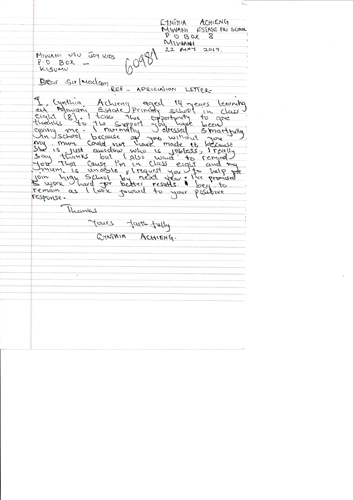 CYNTHIA ACHIENG
MIWANI ESTATE PRI SCHOOL
P O BOX 8
MIWANI
22 MAY 2019.
MIWANI USU JOY KIDS
P.O BOX -
KISUMU
60981
Dear Sir/Madam
REF - APRICIATION LETTER.
I, Cynthia Achieng aged 14 years learning
at Miwani Estate Primary school in class
Eight (8). I take this opportunity to give
thanks to the support you have been
giving me. I normally dressed smartfully
in school because of you without you
my mum could not have made it because
she is just awidow who is jobless, I really
say thanks but I also want to remind
you that cause I'm in class eight and my
mum is unable, I request you to help me
join high School by next year. I've promised
to work hard for better results. I beg to
remain as I look forward to your positive
response.
Thanks
Yours faithfully
CYNTHIA ACHIENG.